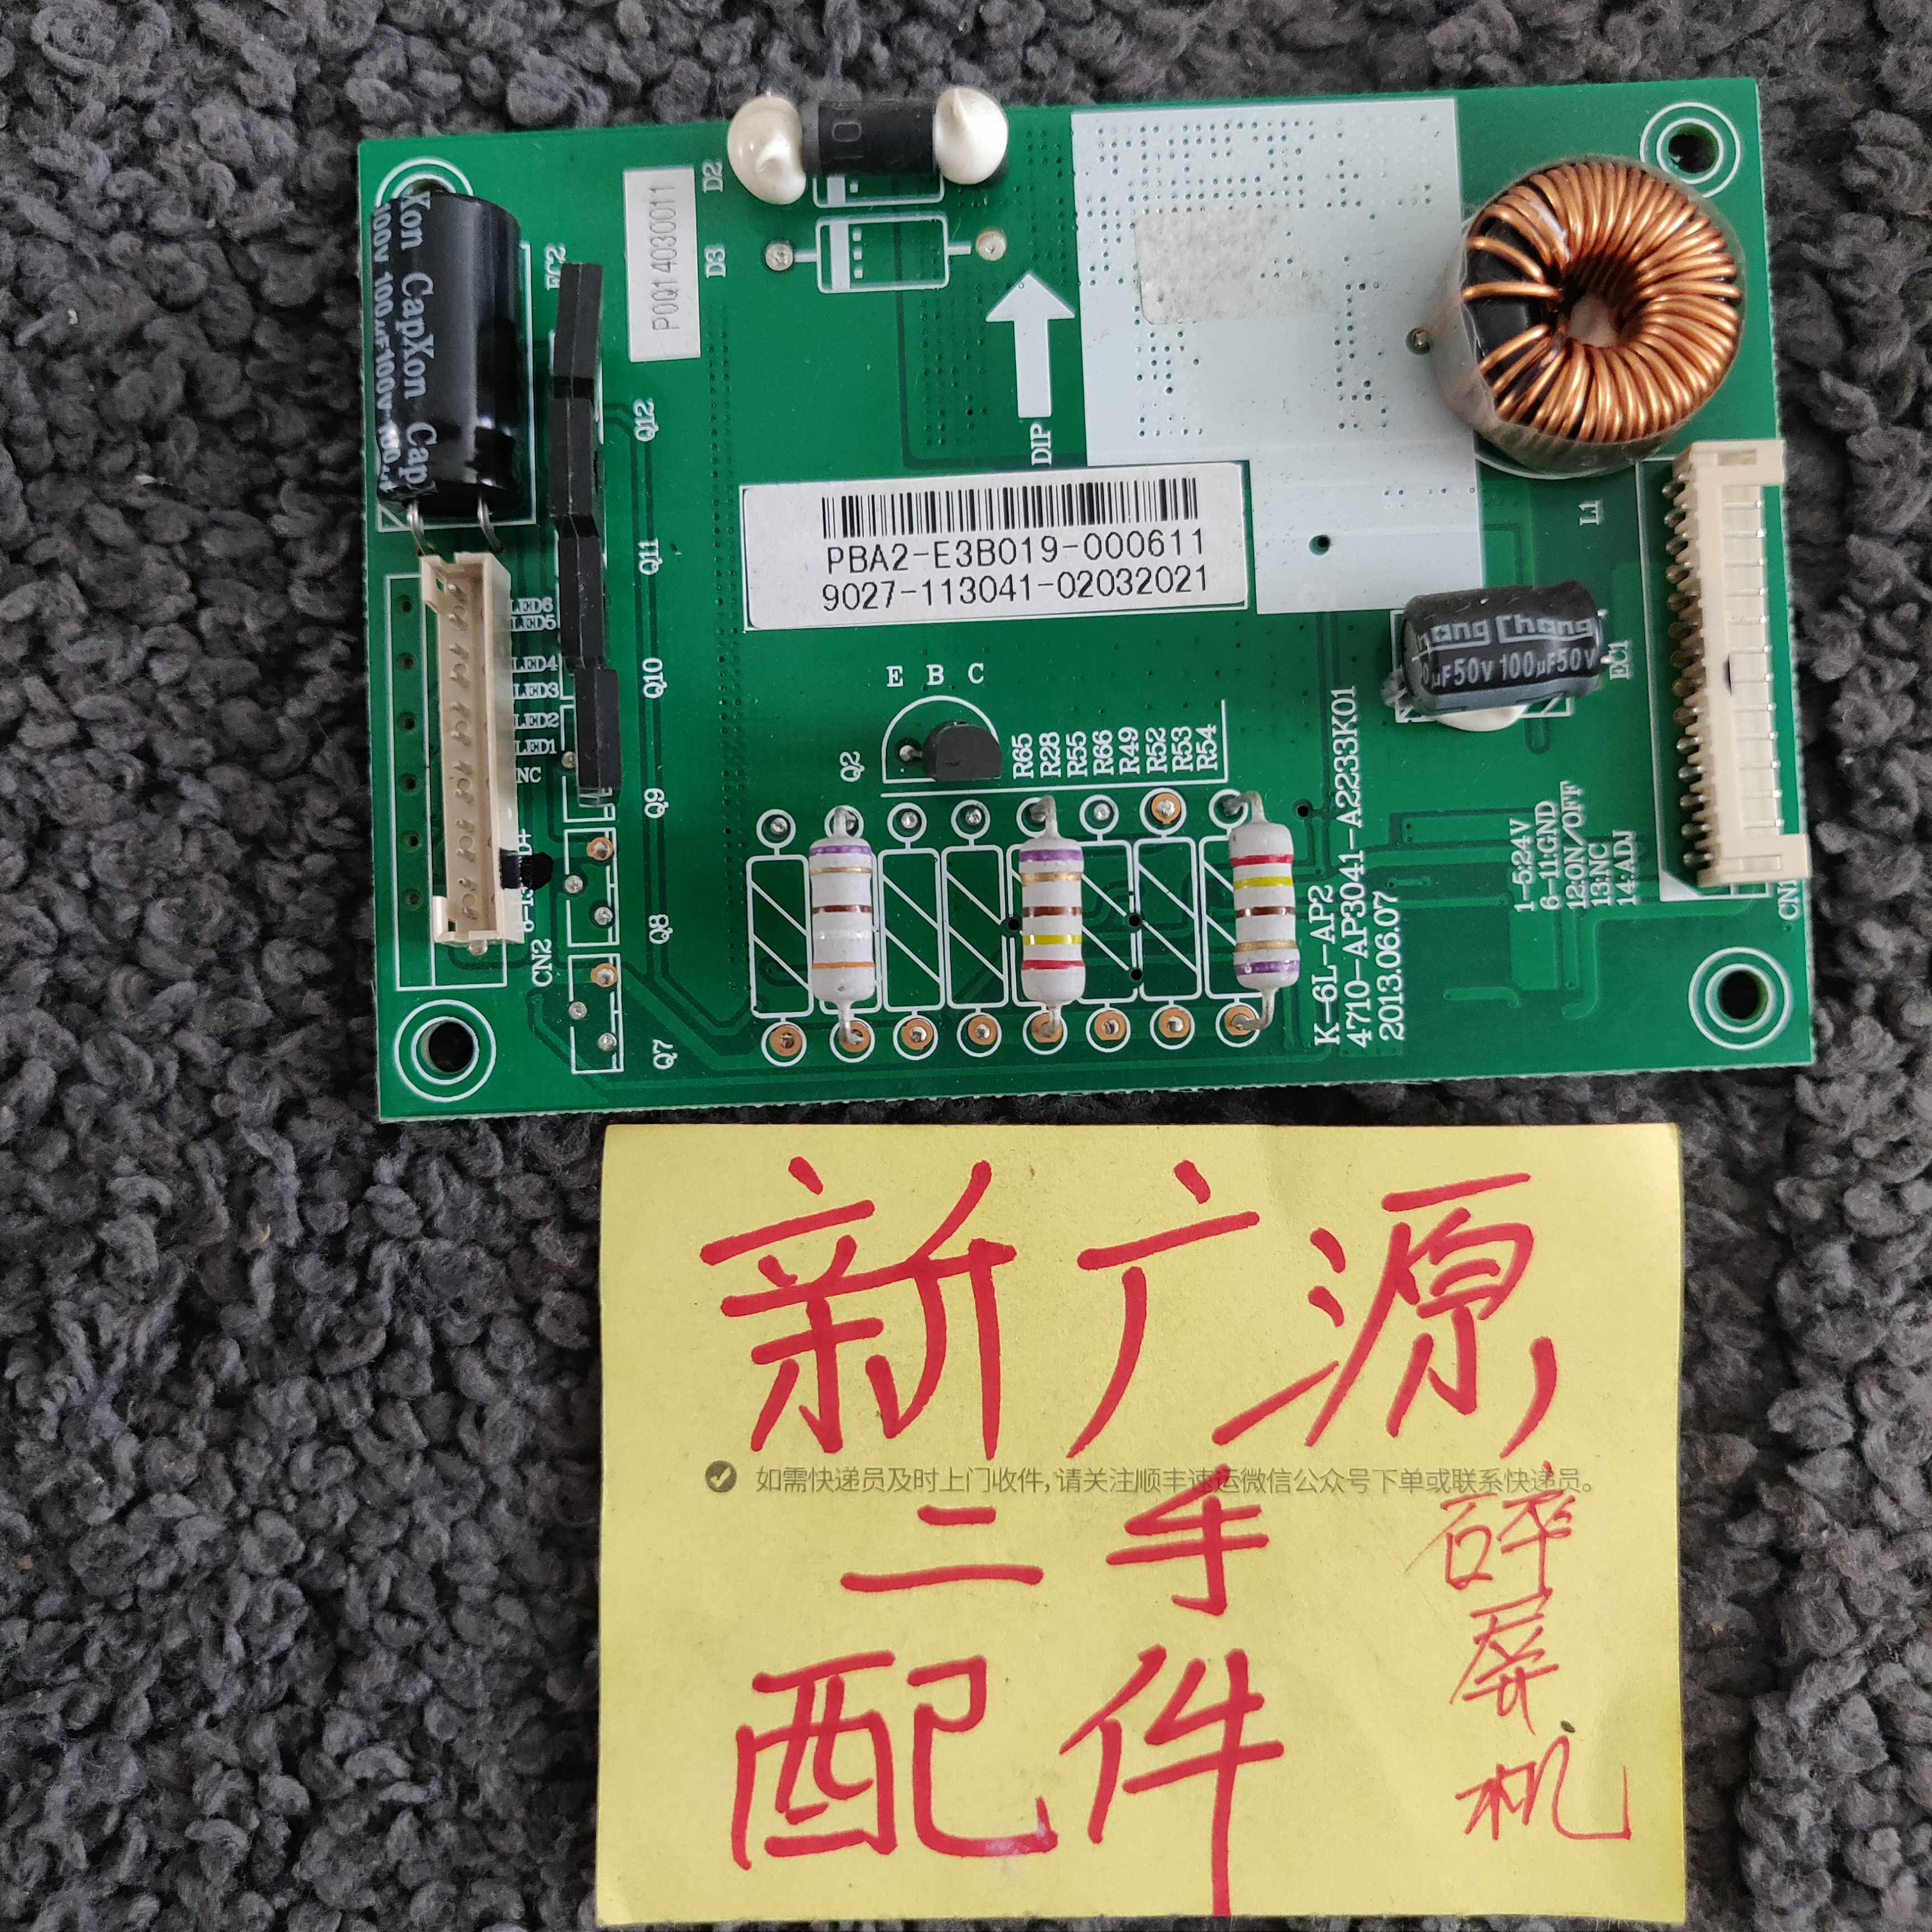 10
D2
D3
P0Q14030011
Xon CapXon Cap
100V 100µF100V 100µ
EC2
DIP
Q12
Q11
Q10
Q9
Q8
Q7
L1
PBA2-E3B019-000611
9027-113041-02032021
LED6
LED5
LED4
LED3
LED2
LED1
NC
CN2
E B C
Q2
R65
R28
R55
R66
R49
R52
R53
R54
Chang
µF50V 100µF50V
EC1
K-6L-AP2
4710-AP3041-A2233K01
2013.06.07
1-5:24V
6-11:GND
12:ON/OFF
13:NC
14:ADJ
CN1
新广源
如需快递员及时上门收件,请关注顺丰速运微信公众号下单或联系快递员。
二手
配件
碎屏机